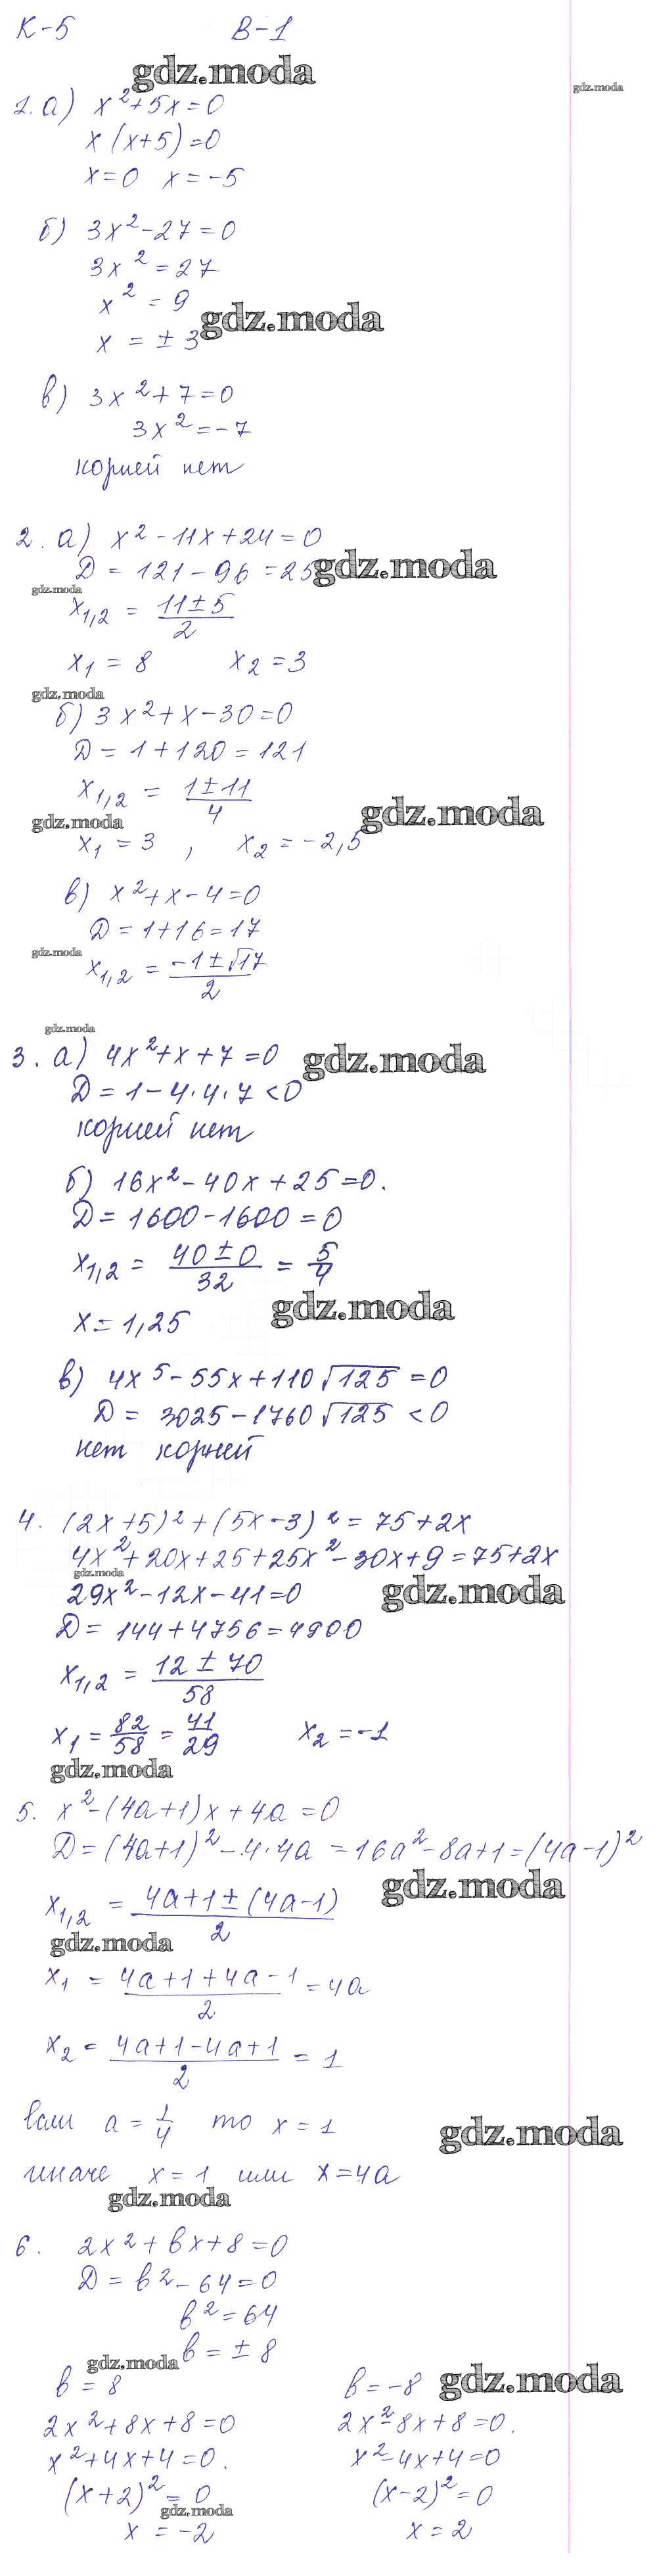 К-5 В-1
gdz.moda
gdz.moda
1. а) x²+5x=0
x(x+5)=0
x=0 x=-5
б) 3x²-27=0
3x²=27
x²=9
gdz.moda
x=±3
в) 3x²+7=0
3x²=-7
корней нет
2. а) x²-11x+24=0
D=121-96=25
gdz.moda
gdz.moda
x₁,₂ = (11±5)/2
x₁=8 x₂=3
gdz.moda
б) 3x²+x-30=0
D=1+120=121
x₁,₂ = (1±11)/4
gdz.moda
gdz.moda
x₁=3, x₂=-2,5
в) x²+x-4=0
D=1+16=17
gdz.moda
x₁,₂ = (-1±√17)/2
gdz.moda
3. а) 4x²+x+7=0
gdz.moda
D=1-4·4·7<0
корней нет
б) 16x²-40x+25=0.
D=1600-1600=0
x₁,₂ = (40±0)/32 = 5/4
gdz.moda
x=1,25
в) 4x⁵-55x+110√125=0
D=3025-1760√125<0
нет корней
4. (2x+5)²+(5x-3)²=75+2x
4x²+20x+25+25x²-30x+9=75+2x
gdz.moda
gdz.moda
29x²-12x-41=0
D=144+4756=4900
x₁,₂ = (12±70)/58
x₁ = 82/58 = 41/29 x₂=-1
gdz.moda
5. x²-(4a+1)x+4a=0
D=(4a+1)²-4·4a=16a²-8a+1=(4a-1)²
gdz.moda
x₁,₂ = (4a+1±(4a-1))/2
gdz.moda
x₁ = (4a+1+4a-1)/2 = 4a
x₂ = (4a+1-4a+1)/2 = 1
если a=1/4 то x=1
gdz.moda
иначе x=1 или x=4a
gdz.moda
6. 2x²+bx+8=0
D=b²-64=0
b²=64
b=±8
gdz.moda
gdz.moda
b=8 b=-8
2x²+8x+8=0 2x²-8x+8=0.
x²+4x+4=0. x²-4x+4=0
(x+2)²=0 (x-2)²=0
gdz.moda
x=-2 x=2